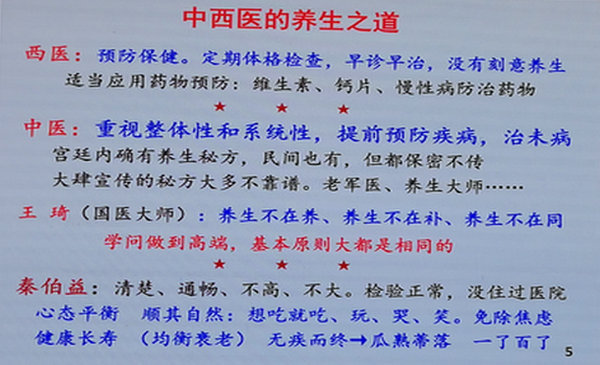 中西医的养生之道
西医：预防保健。定期体格检查，早诊早治，没有刻意养生
适当应用药物预防：维生素、钙片、慢性病防治药物
★ ★ ★
中医：重视整体性和系统性，提前预防疾病，治未病
宫廷内确有养生秘方，民间也有，但都保密不传
大肆宣传的秘方大多不靠谱。老军医、养生大师……
王 琦（国医大师）：养生不在养、养生不在补、养生不在同
学问做到高端，基本原则大都是相同的
★ ★ ★
秦伯益：清楚、通畅、不高、不大。检验正常，没住过医院
心态平衡 顺其自然：想吃就吃、玩、哭、笑。免除焦虑
健康长寿 （均衡衰老） 无疾而终→瓜熟蒂落 一了百了
5